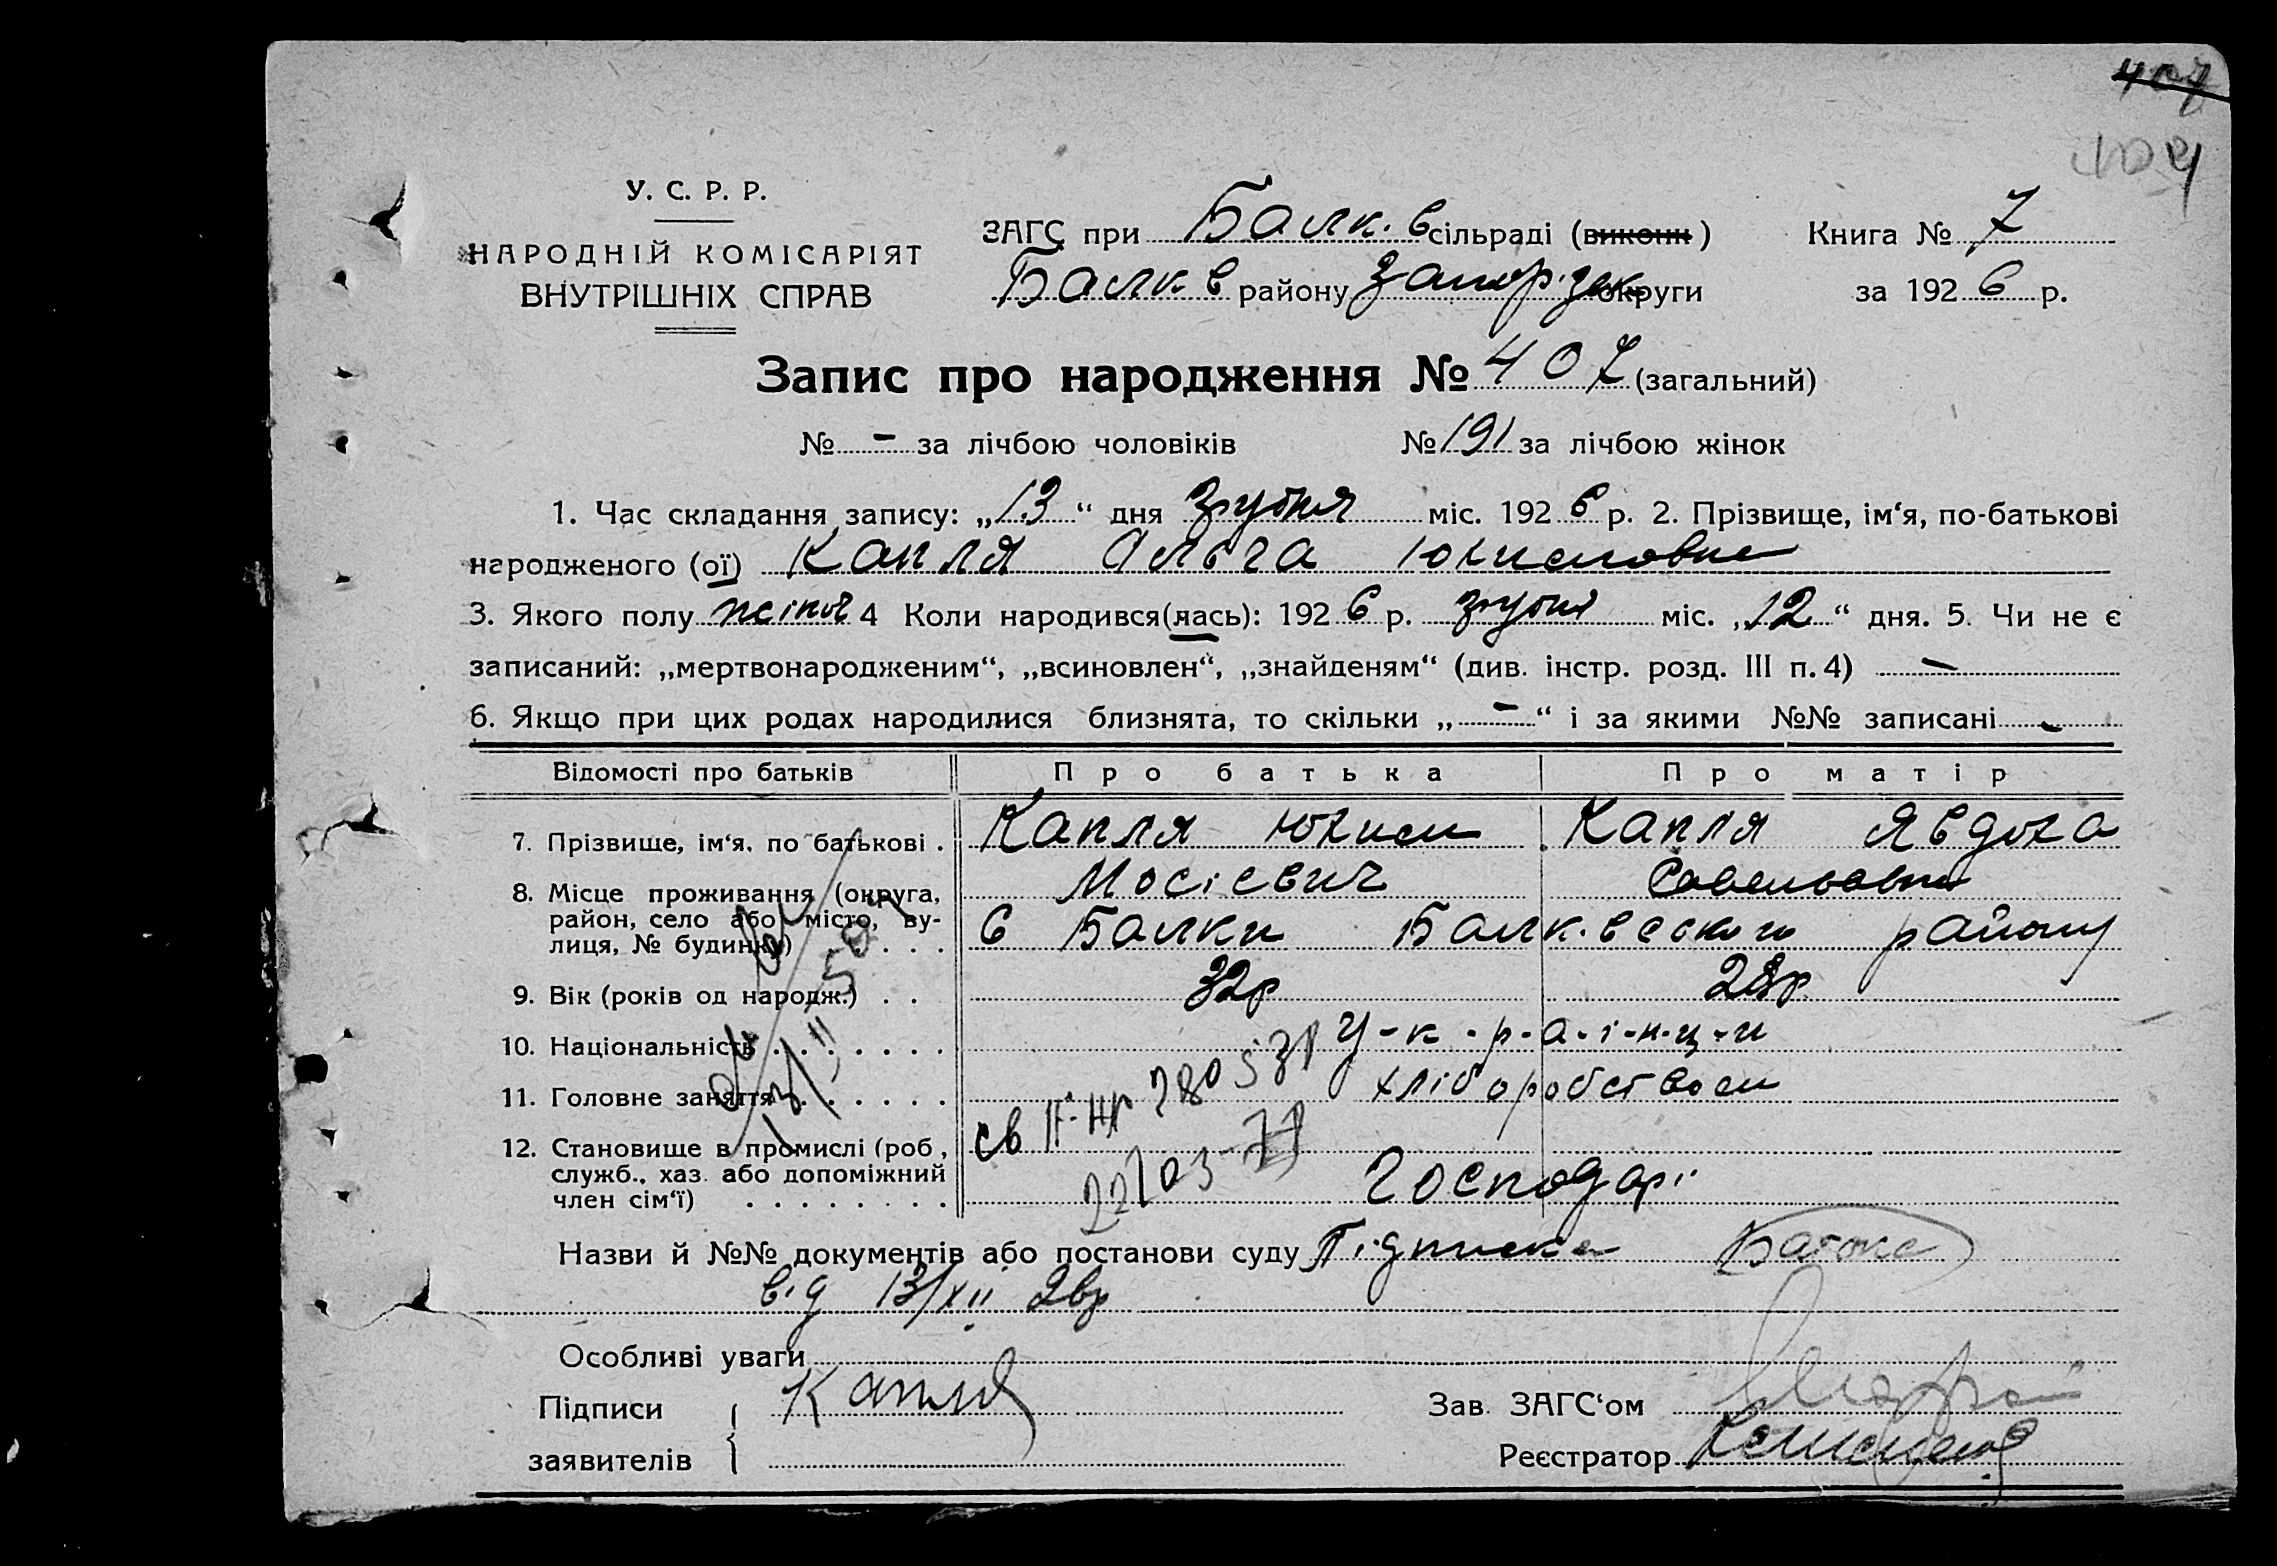 407
404
У. С. Р. Р.
НАРОДНІЙ КОМІСАРІЯТ
ВНУТРІШНІХ СПРАВ
ЗАГС при Балк. в сільраді (викони)
Балк в району Запор.зек округи
Книга № 7
за 1926 р.
Запис про народження № 407 (загальний)
№ - за лічбою чоловіків № 191 за лічбою жінок
1. Час складання запису: „13“ дня Грудня міс. 1926 р. 2. Прізвище, ім‘я, по-батькові
народженого (ої) Капля Ольга Юхимовна
3. Якого полу жіноч 4 Коли народився(лась): 1926 р. грудня міс. „12“ дня. 5. Чи не є
записаний: „мертвонародженим“, „всиновлен“, „знайденям“ (див. інстр. розд. III п. 4) -
6. Якщо при цих родах народилися близнята, то скільки „-“ і за якими №№ записані -
Відомості про батьків Про батька Про матір
7. Прізвище, ім‘я, по батькові . Капля Юхим Капля Явдоха
Мосієвич Савельовна
8. Місце проживання (округа,
район, село або місто, ву-
лиця, № будинку) . . . С Балки Балк.вського району
9. Вік (років од народж.) . . 32р 28р
10. Національність . . . . . . . у-к-р-а-і-н-ц-и
11. Головне заняття . . . . . . . хліборобством
св II-НР 280531
22/03-77
12. Становище в промислі (роб.,
служб., хаз. або допоміжний
член сім‘ї) . . . . . . . . Господарі
Назви й №№ документів або постанови суду Підписка Батька
від 13/XII 26р
Особливі уваги
Підписи Капля
заявителів
Зав. ЗАГС‘ом
Реєстратор